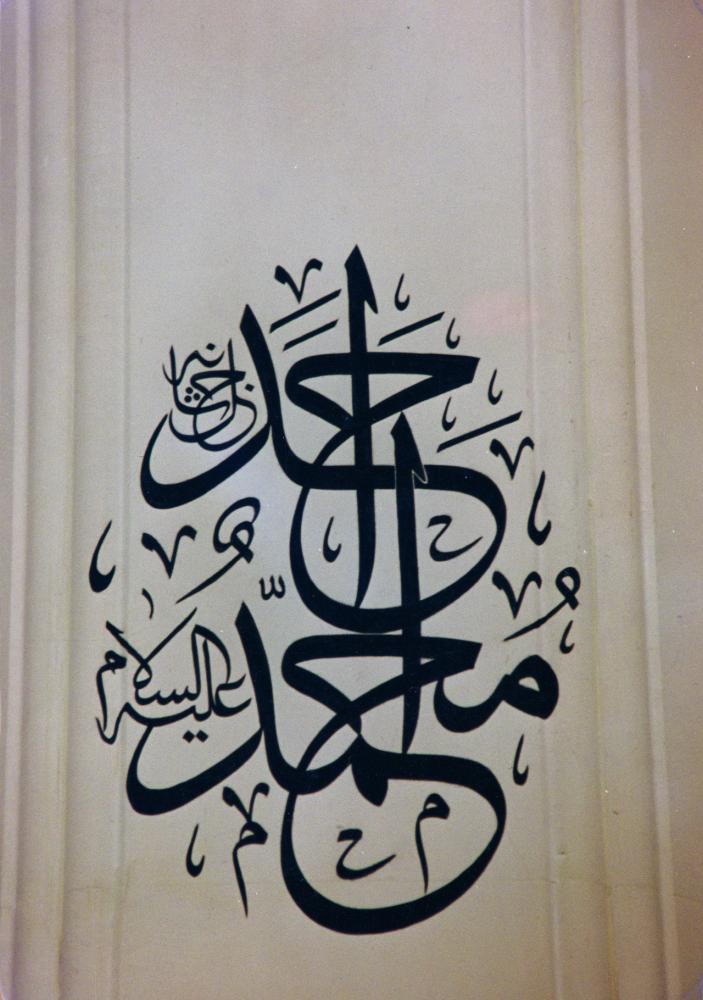 احد جل شانه
مُحمّد عليه السلام